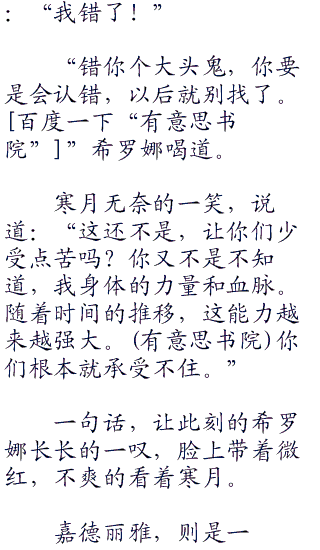 ：“我错了！”
“错你个大头鬼，你要
是会认错，以后就别找了。
[百度一下“有意思书
院”]”希罗娜喝道。
寒月无奈的一笑，说
道：“这还不是，让你们少
受点苦吗？你又不是不知
道，我身体的力量和血脉。
随着时间的推移，这能力越
来越强大。(有意思书院)你
们根本就承受不住。”
一句话，让此刻的希罗
娜长长的一叹，脸上带着微
红，不爽的看着寒月。
嘉德丽雅，则是一